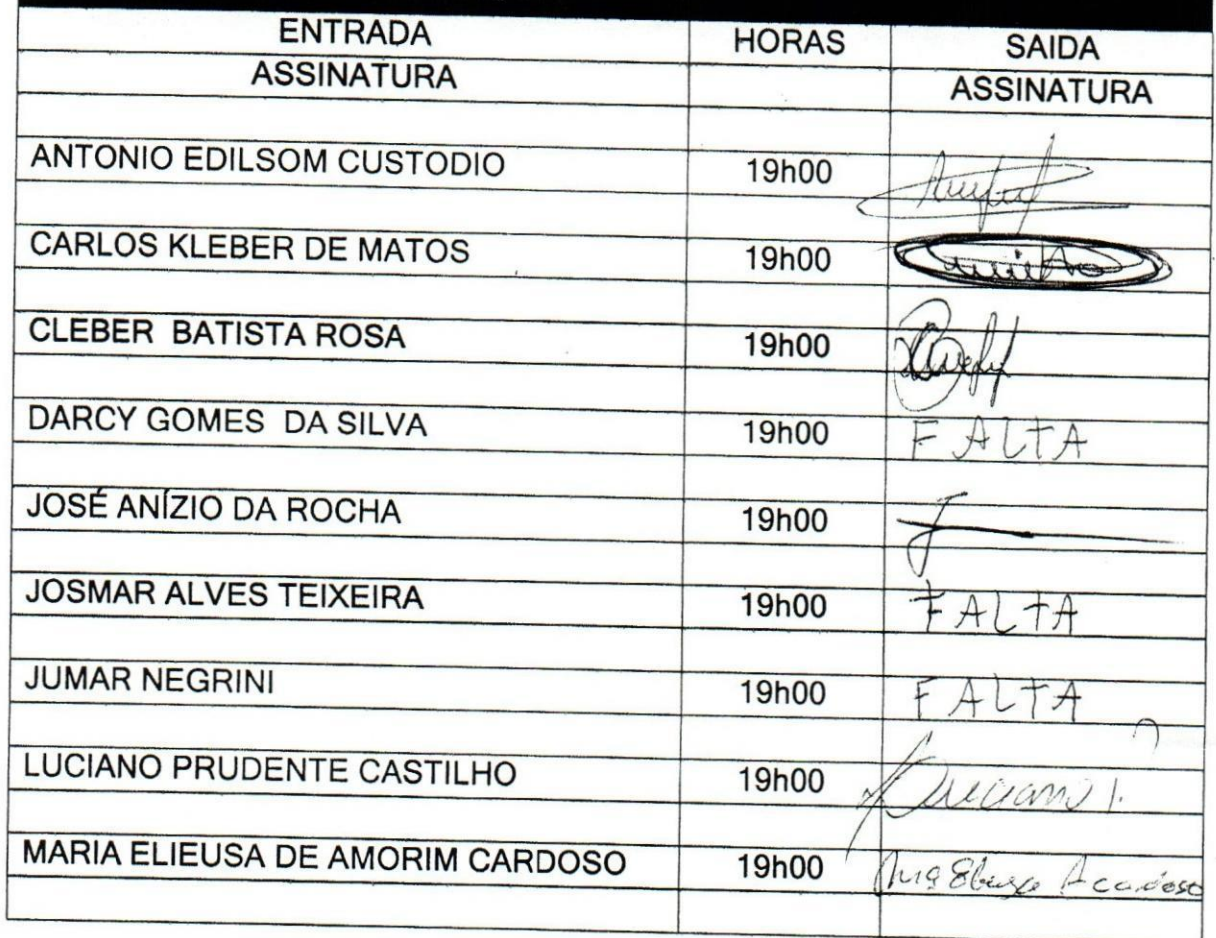 ENTRADA HORAS SAIDA
ASSINATURA ASSINATURA
ANTONIO EDILSOM CUSTODIO 19h00
CARLOS KLEBER DE MATOS 19h00
CLEBER BATISTA ROSA 19h00
DARCY GOMES DA SILVA 19h00 FALTA
JOSÉ ANÍZIO DA ROCHA 19h00
JOSMAR ALVES TEIXEIRA 19h00 FALTA
JUMAR NEGRINI 19h00 FALTA
LUCIANO PRUDENTE CASTILHO 19h00 Luciano
MARIA ELIEUSA DE AMORIM CARDOSO 19h00 A cardoso